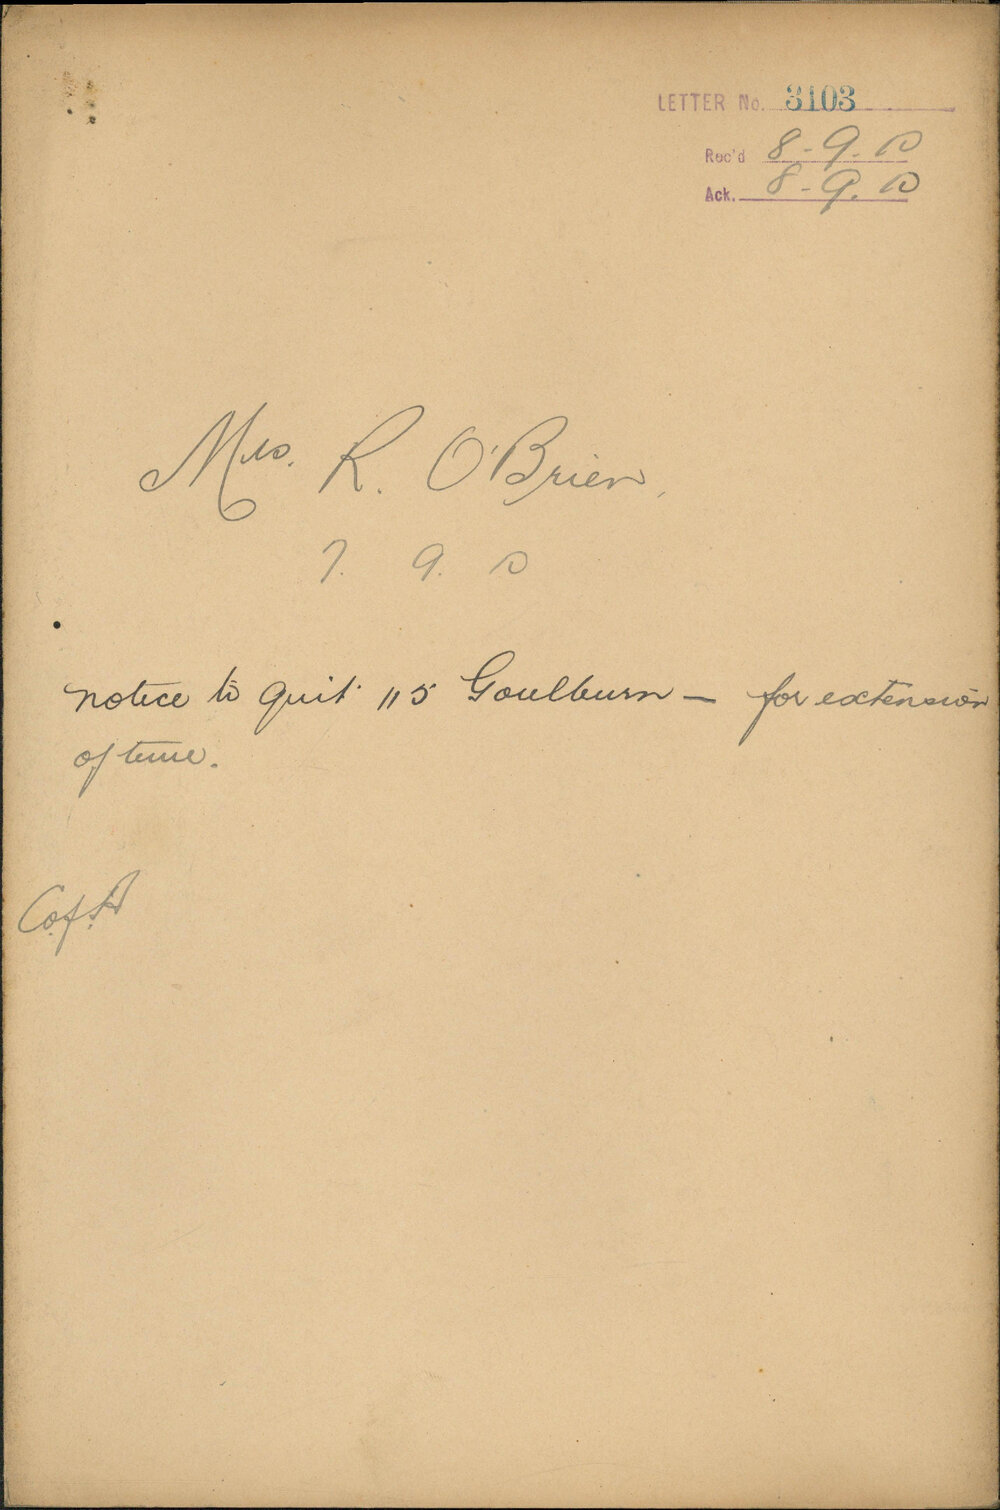 LETTER No. 3103
Rec'd 8-9-10
Ack. 8-9.10
Mrs. R. O'Brien,
7. 9. 10
notice to quit 115 Goulburn — for extension
of time.